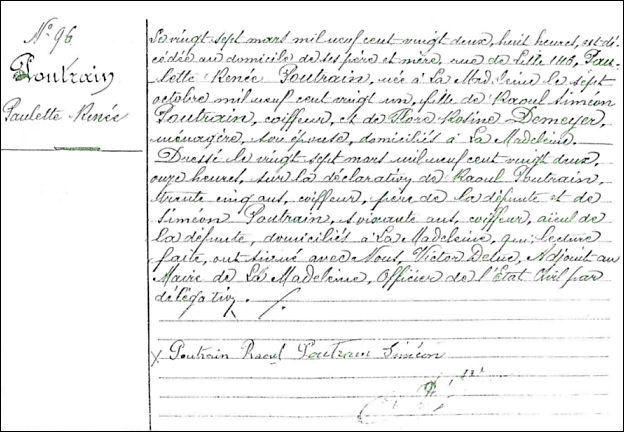 N° 96
Poutrain
Paulette Renée
Le vingt sept mars mil neuf cent vingt deux, huit heures, est dé-
cédée au domicile de ses père et mère, rue de Lille 186, Pau-
lette Renée Poutrain, née à La Madeleine le sept
octobre mil neuf cent vingt un, fille de Raoul Siméon
Poutrain, coiffeur, et de Flore Rosine Demeyer,
ménagère, son épouse, domiciliés à La Madeleine.
Dressé le vingt sept mars mil neuf cent vingt deux,
onze heures, sur la déclaration de Raoul Poutrain,
trente cinq ans, coiffeur, père de la défunte et de
Siméon Poutrain, soixante ans, coiffeur, aïeul de
la défunte, domiciliés à La Madeleine, qui, lecture
faite, ont signé avec Nous, Victor, Adjoint au
Maire de La Madeleine, Officier de l'Etat Civil par
délégation.
Poutrain Raoul Poutrain Siméon